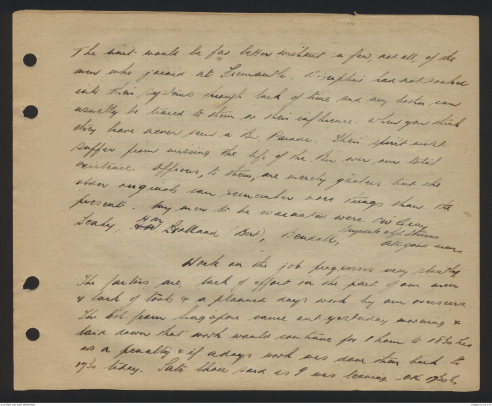 The unit would be far better without a few, not all, of the
men who joined at Fremantle. Discipline has not soaked
into their systems through lack of time and any bother can
usually be traced to them or their influence. When you think
they have never seen a Bn. Parade. Their spirit must
suffer from missing the life of the Bn over our total
existence. Officers, to them, are merely gaolers but the
other originals can remember nore things than the
present. Any men to be evacuated were Conlay
Leahy, Holland (Don), Bendall, Reynolds &
All good men
Work on the job progresses very slowly
The factors are lack of effort on the part of our men
& lack of tools & a planned days work by our overseers
The Col. from Singapore came out yesterday morning &
laid down that work would continue for 1 hour to 1830 hrs
as a penalty & if a days work was done then back to
1730 today. Sato Shoei said as I was leaving at